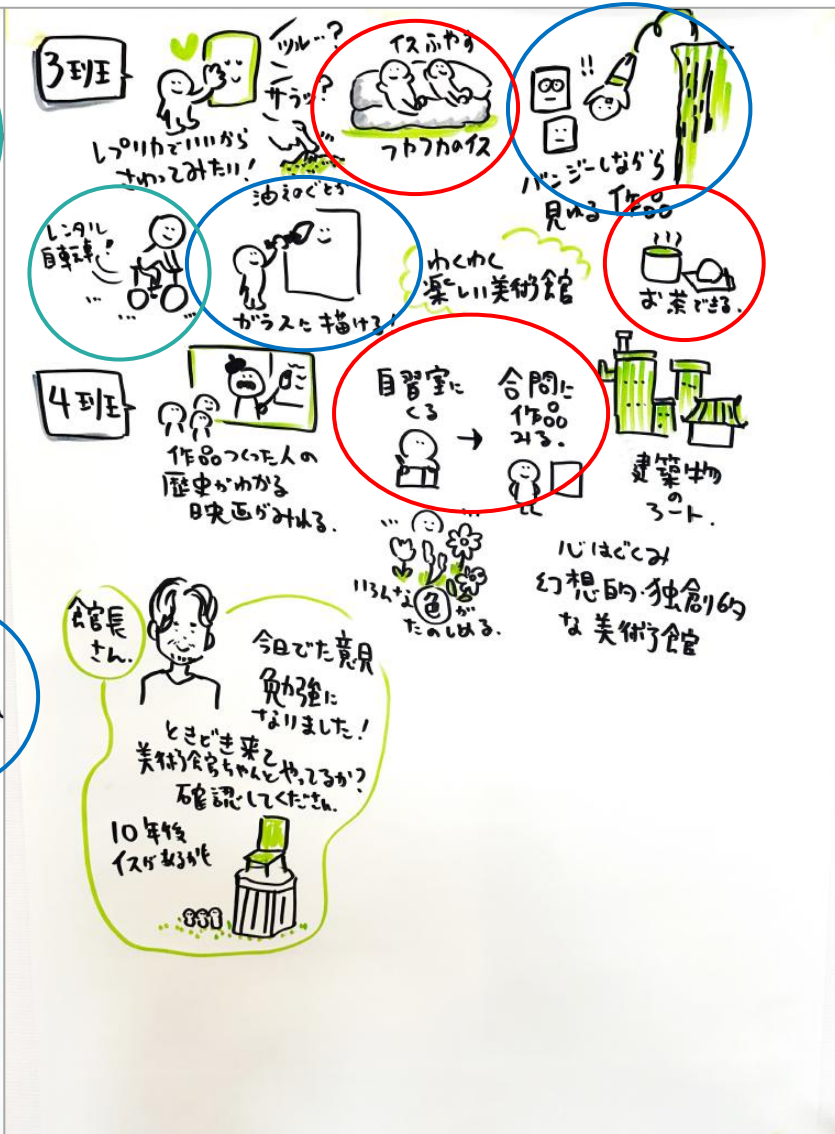 3班
ツルー…?
サラッ?
レプリカでいいから
さわってみたい!
油えのぐとか
イスふやす
フカフカのイス
!!
バンジーしながら
見れる作品
レンタル
自転車!
ガラスに描ける!
わくわく
楽しい美術館
お茶できる.
4班
作品つくった人の
歴史がわかる
映画がみれる.
自習室に
くる
→
合間に
作品
みる.
建築物
の
アート.
いろんな色が
たのしめる.
心はぐくみ
幻想的・独創的
な美術館
館長
さん.
今日でた意見
勉強に
なりました!
ときどき来て
美術館ちゃんとやってるか?
確認してください.
10年後
イスがあるかも